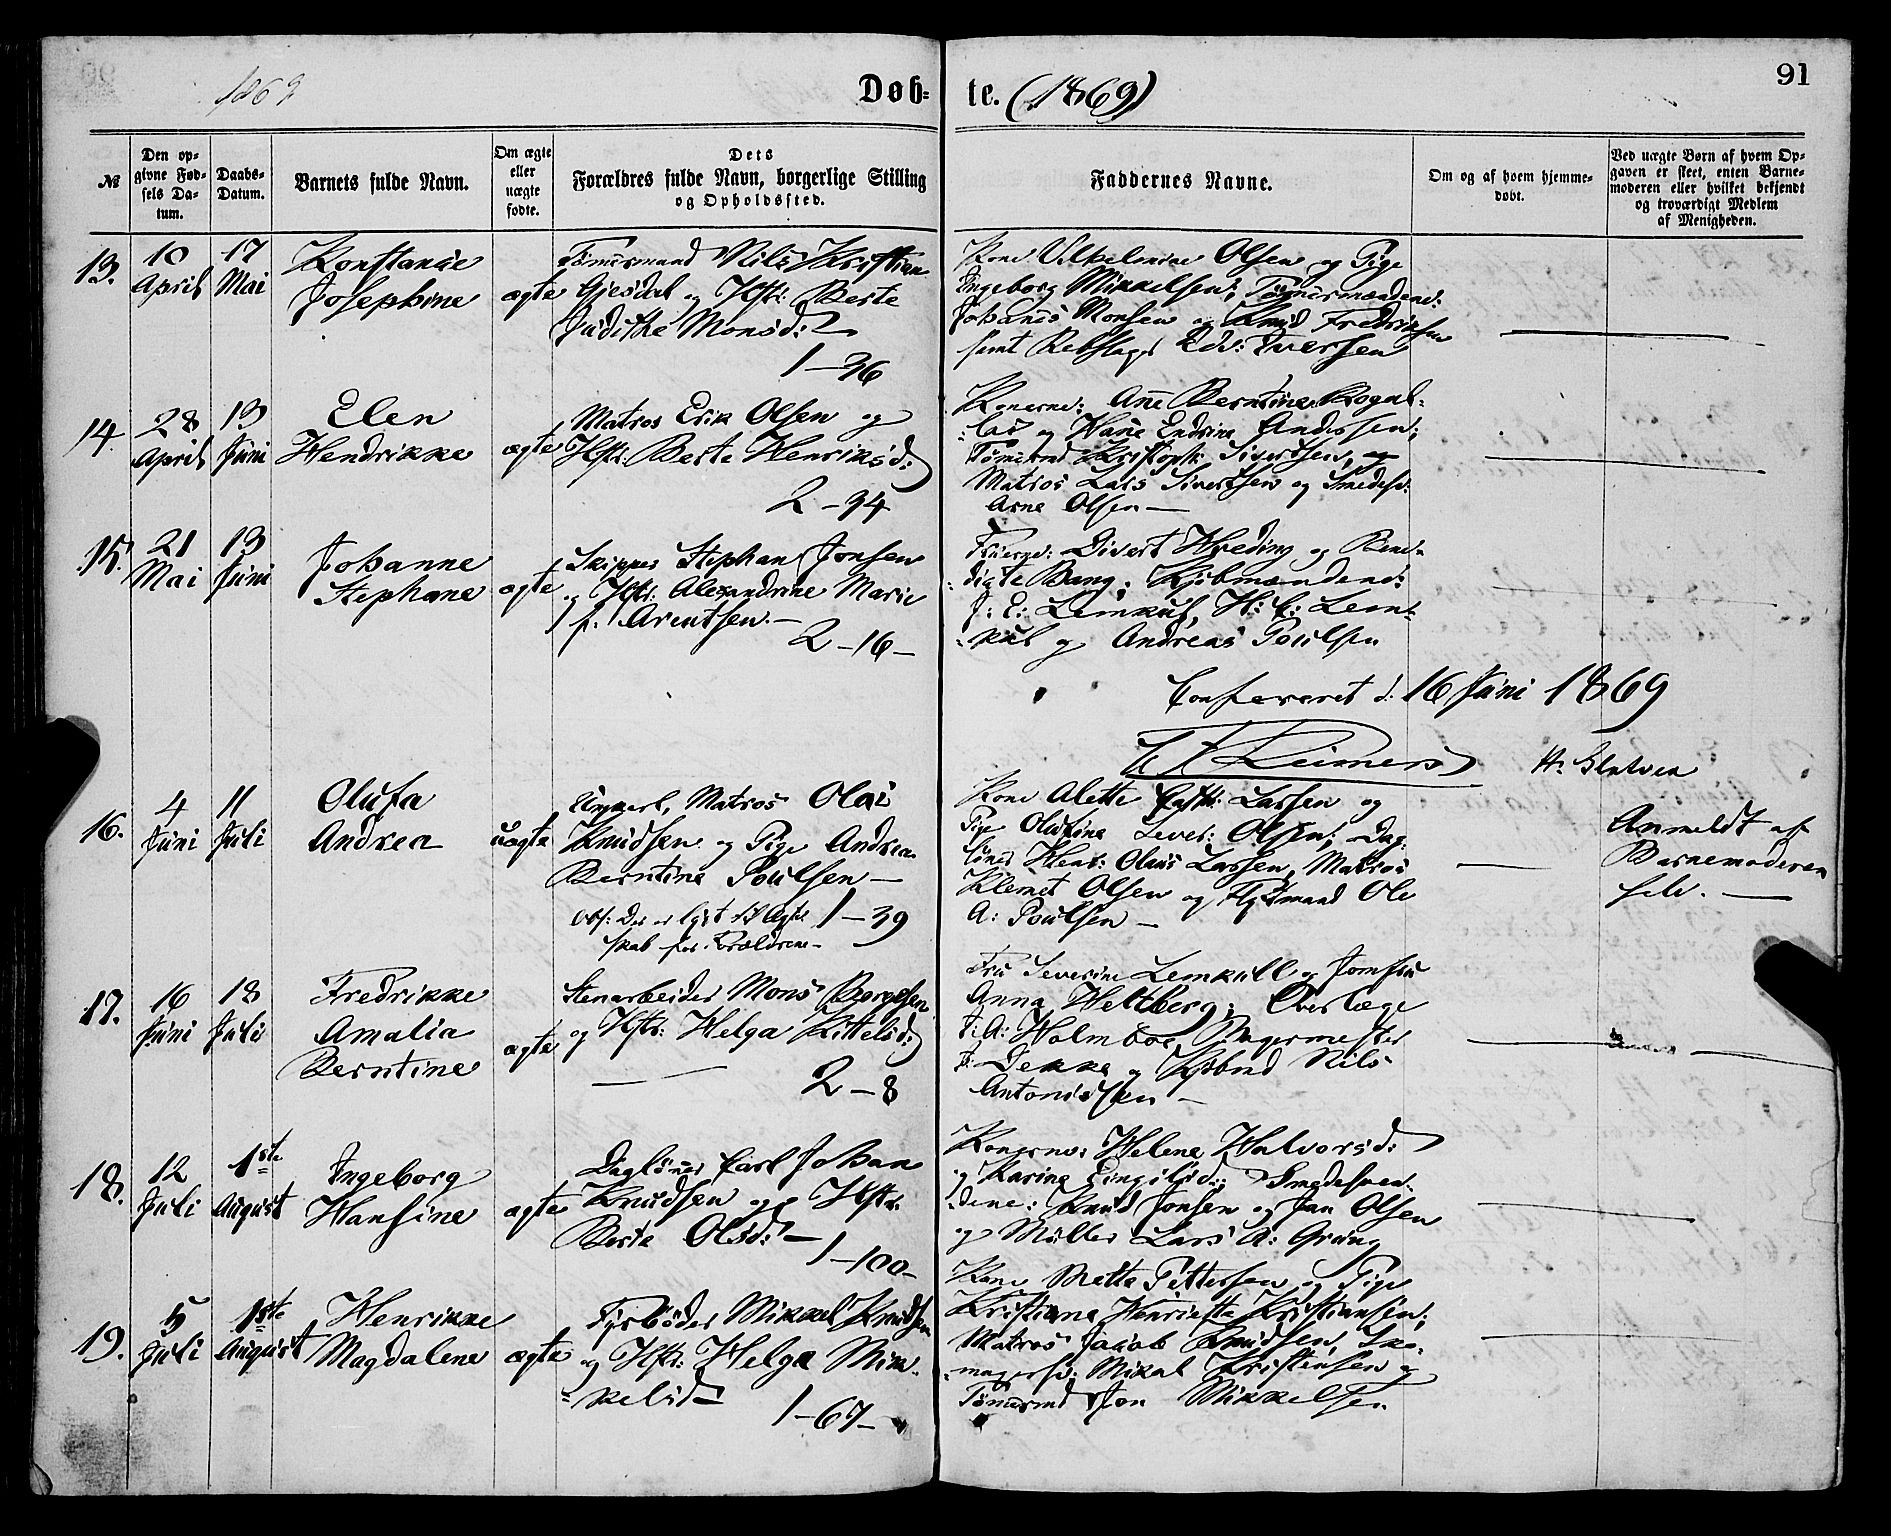 91
1869
Døb- te. (1869)
№
Den op-
givne Fød-
sels Da-
tum.
Daabs-
Datum.
Barnets fulde Navn.
Om ægte
eller
uægte
fødte.
Dets
Forældres fulde Navn, borgerlige Stilling
og Opholdssted.
Faddernes Navne.
Om og af hvem hjemme-
døbt.
Ved uægte Børn af hvem Op-
gaven er skeet, enten Barne-
moderen eller hvilket bekjendt
og troværdigt Medlem
af Menigheden.
13.
10
April
17
Mai
Konstanse
Josephine
ægte
Tømermand Nils Kristian
Gjesdal og Hstr: Berte
Judithe Monsd:
1-36
Kone Vilhelmine Olsen og Pige
Ingeborg Mikkelsen; Tømermændene:
Johanes Monsen og Knud Fredriksen
samt Rebslager Edv: Iversen
14.
28
April
13
Juni
Elen
Hendrikke
ægte
Matros Erik Olsen og
Hstr: Berte Henriksd:
2-34
Konerne: Ane Berntine
og Hane Endrine Andersen;
Tømermd Kristoph: Sivertsen, og
Matros Lars Sivertsen og Smedesv:
Arne Olsen
15.
21
Mai
13
Juni
Johanne
Stephane
ægte
Skipper Stephan Jonsen
og Hstr: Alexandrine Marie
f. Arentsen.
2-16-
Fruerne: Divert Hveding og Bene-
digte Bang; Kjøbmændene:
J: E: Lemkul, H: C: Lem-
kul og Andreas Poulsen
Confereret d: 16 Juni 1869
Reimers
16.
4
Juni
11
Juli
Olufa
Andrea
uægte
Ungkarl, Matros Olai
Knudsen og Pige Andrea
Berntine Poulsen
Obs: Der er lyst til Ægte-
skab for Forældrene-
1-39
Kone Alette Cath: Larsen og
Pige Olufine Sever: Olsen; Dag-
løner Hans: Olaus Larsen, Matros
Klemet Olsen og Hsmand Ole
A: Poulsen
Anmeldt af
Barnemoderen
selv.
17.
16
Juni
18
Juli
Fredrikke
Amalia
Berntine
ægte
Stenarbeider Mons Børgesen
og Hstr: Helga Kittelsd:
2-8
Fru Severine Lemkull og Jomfru
Anna Heltberg; Overlæge
J: A: Holmboe, Bagermester
Dekke og Kjøbmd Nils
Antonissen
18.
12
Juli
1ste
August
Ingeborg
Hansine
ægte
Dagløner Carl Johan
Knudsen og Hstr:
Berte Olsd:
1-100-
Konerne: Helene Halvorsd:
og Karine Engilsd:; Smedesven-
dene: Knud Jonsen og Jan Olsen
og Møller Lars A: Grøng
19.
5
Juli
1ste
August
Henrikke
Magdalene
ægte
Fyrbøder Mikkel Knudsen
og Hstr: Helga Mik-
kelsd
1-67-
Kone Mette Pettersen og Pige
Kristiane Henriette Kristiansen;
Matros Jakob Knudsen, Sko-
magersv: Mikal Kristensen og
Tømermd Jon Mikkelsen